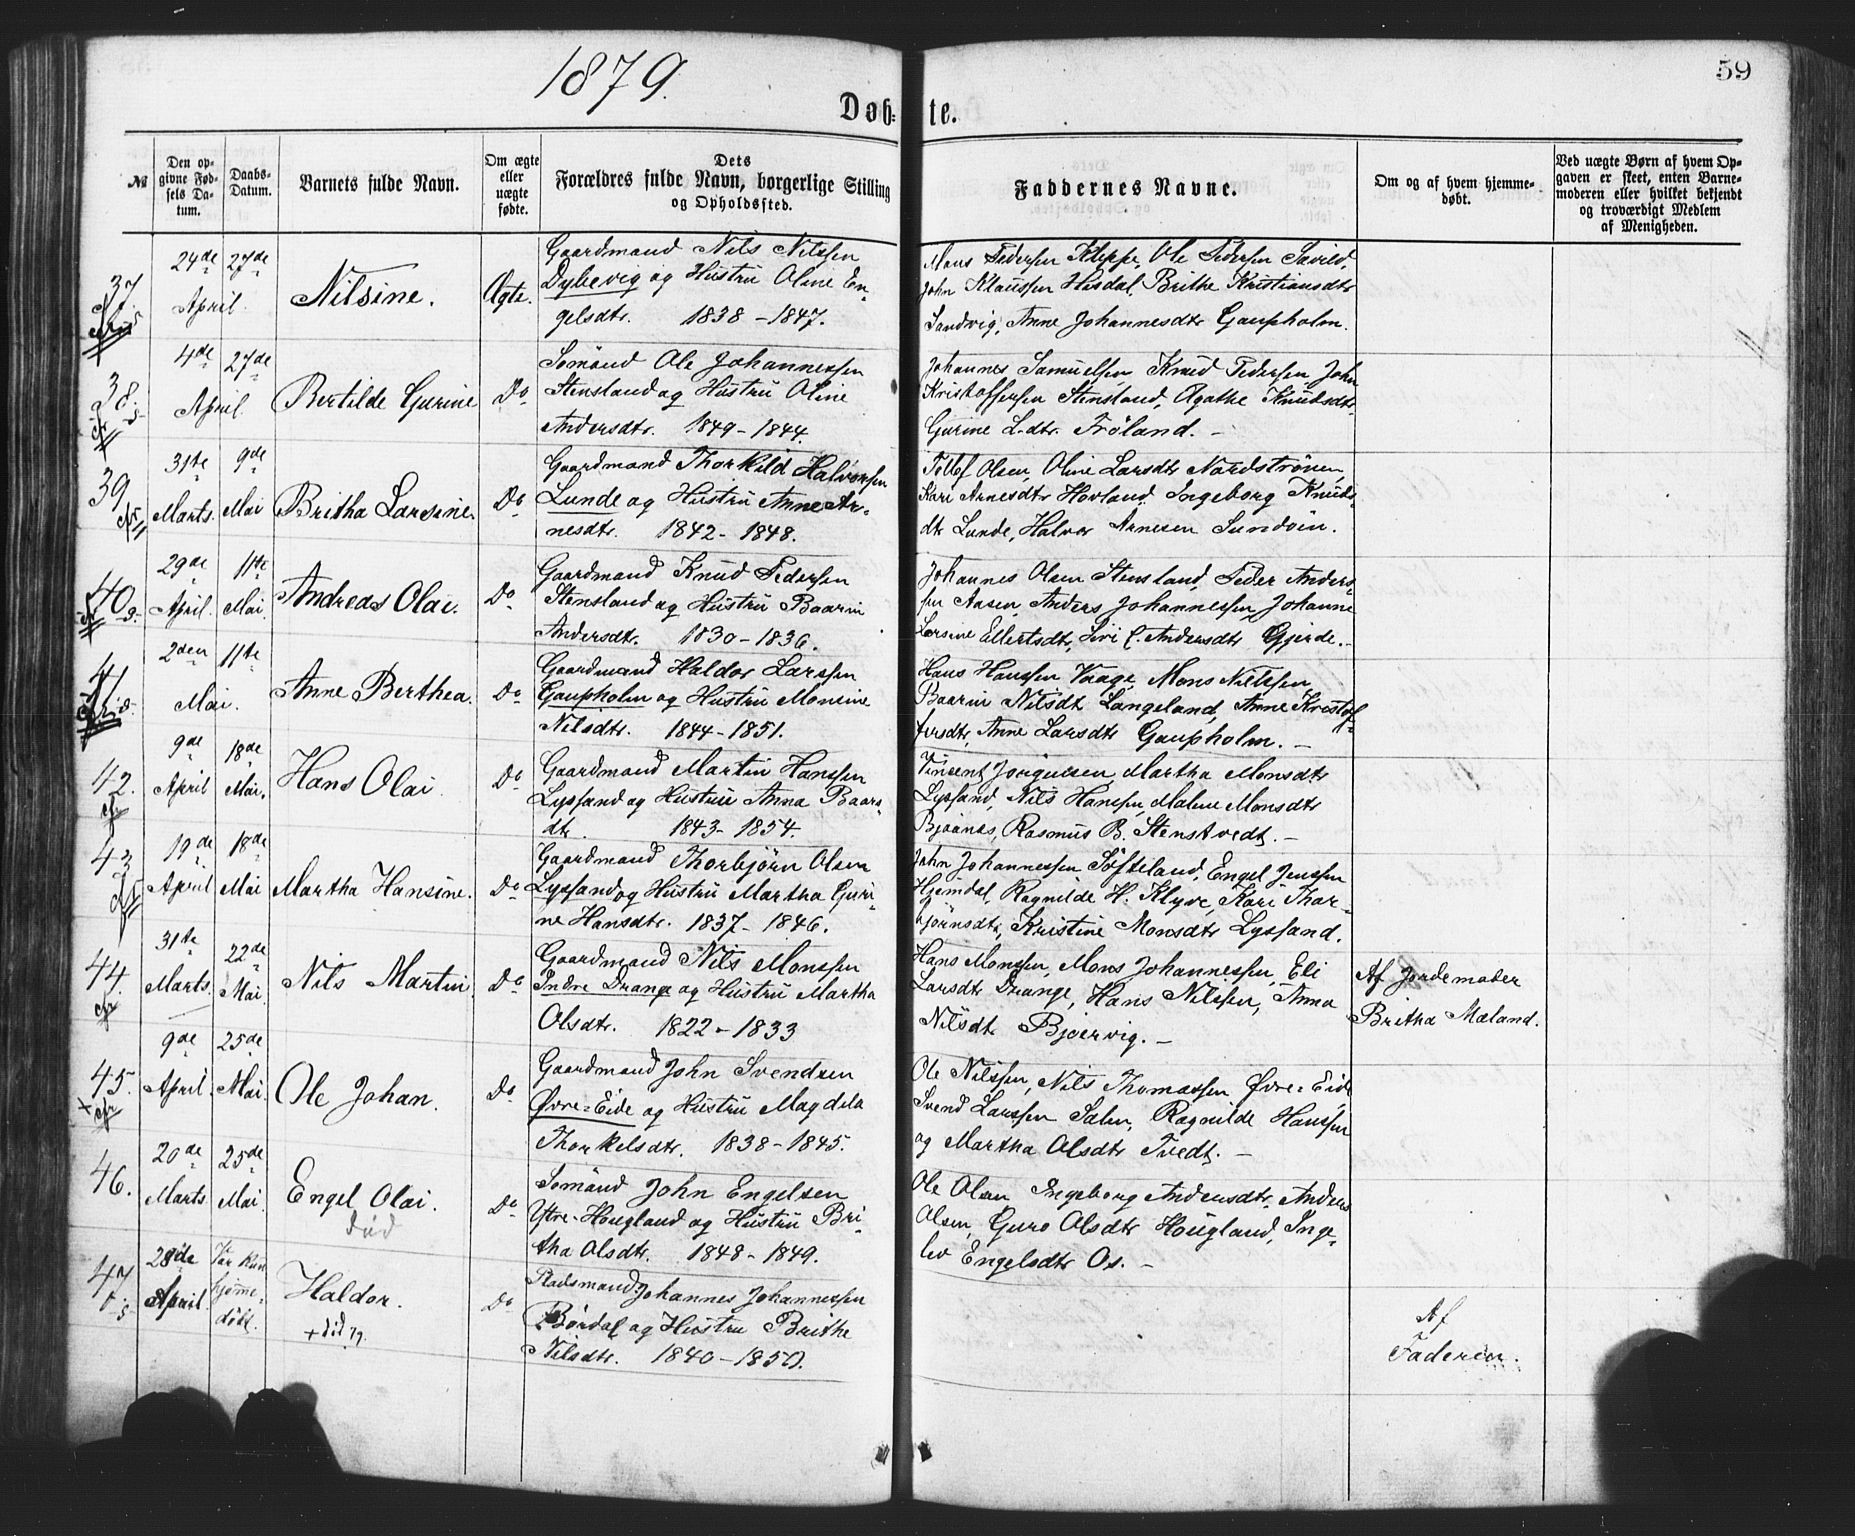 1879.
59
Døb- te.
№
Den opgivne Fødsels Datum.
Daabs-Datum.
Barnets fulde Navn.
Om ægte eller uægte fødte.
Dets Forældres fulde Navn, borgerlige Stilling og Opholdssted.
Faddernes Navne.
Om og af hvem hjemmedøbt.
Ved uægte Børn af hvem Opgaven er skeet, enten Barnemoderen eller hvilket bekjendt og troværdigt Medlem af Menigheden.
37.
24de April
27de
Nilsine.
Ægte.
Gaardmand Nils Nilssen
Dybevig og Hustru Oline En-
gelsdtr. 1838 - 1847.
Mons Pedersen Kleppe, Ole Pedersen
John Klaussen Hisdal, Brithe Kristiansdtr
Sandvig, Anne Johannesdtr Gaupholm.
38.
4de April
27de
Bertilde Gurine
Do
Sømand Ole Johannessen
Stensland og Hustru Oline
Andersdtr. 1849 - 1844.
Johannes Samuelsen Knud Pedersen John
Kristoffersen Stensland, Agathe Knudsdtr.
Gurine L.dtr. Frøland. -
39
31te Marts.
9de Mai
Britha Larsine.
Do
Gaardmand Thorkild Halvorsen
Lunde og Hustru Anne Ar-
nesdtr. 1842 - 1848.
Tollef Olsen, Oline Larsdtr Nordstrønen,
Kari Arnesdtr Hovland. Ingeborg Knuds-
dtr Lunde, Halvor Arnesen Sundvin.
40
29de April.
11te Mai.
Andreas Olai.
Do
Gaardmand Knud Pedersen
Stensland og Hustru Baarni
Andersdtr. 1830 - 1836.
Johannes Olsen Stensland, Peder Anders-
sen Aasen, Anders Johannessen, Johanne
Larsine Ellertsdtr, Livi C. Andersdtr Gjerde. -
41
2den Mai.
11te
Anne Berthea.
Do
Gaardmand Haldor Larssen
Gaupholm og Hustru Monsine
Nilsdtr. 1844 - 1851.
Hans Hanssen Vaage, Mons Nilssen
Baarni Nilsdt Langeland, Anne Kristof-
fersdtr, Anne Larsdtr Gaupholm. -
42.
9de April
18de Mai.
Hans Olai
Do
Gaardmand Martin Hanssen
Lyssand og Hustru Anna Baars-
dtr. 1843 - 1854.
Vincent Jørgensen, Martha Monsdtr
Lyssand, Nils Hanssen, Malene Monsdtr
Bjøanes, Rasmus B. Stenstvedt. -
43
19de April
18de Mai
Martha Hansine.
Do
Gaardmand Thorbjörn Olsen
Lyssand og Hustru Martha Guri-
ne Hansdtr. 1837 - 1846.
John Johannessen Søfteland, Engel Jenssen
Hjemdal, Ragnilde H. Klyve, Kari Thor-
bjørnsdtr, Kristine Monsdtr Lyssand.
44.
31te Marts.
22de Mai.
Nils Martin
Do
Gaardmand Nils Monssen
Indre Drange og Hustru Martha
Olsdtr. 1822 - 1833
Hans Monssen, Mons Johannessen, Eli
Larsdtr Drange, Hans Nilssen, Anna
Nilsdt Bjørvig. -
Af Jordemoder
Britha Mæland.
45.
9de April.
25de Mai.
Ole Johan.
Do
Gaardmand John Svendsen
Øvre-Eide og Hustru Magdela
Thorkelsdtr. 1838 - 1845.
Ole Nilssen, Nils Thomassen Øvre-Eide
Svend Larssen Salen, Ragnilde Hanssen
og Martha Olsdtr Tvedt. -
46.
20de Marts
25de Mai.
Engel Olai.
død
Do
Sømand John Engelsen
Ytre-Hougland og Hustru Bri-
tha Olsdtr. 1848 - 1849.
Ole Olsen Ingeborg Andersdtr, Anders
Olsen, Guro Olsdtr Hougland, Inge-
lev Engelsdtr Os. -
47
28de April.
Var kun hjemme-døbt.
Haldor.
+ død 79.
Do
Pladsmand Johannes Johannessen
Børdal og Hustru Brithe
Nilsdtr. 1840 - 1850.
Af
Faderen.